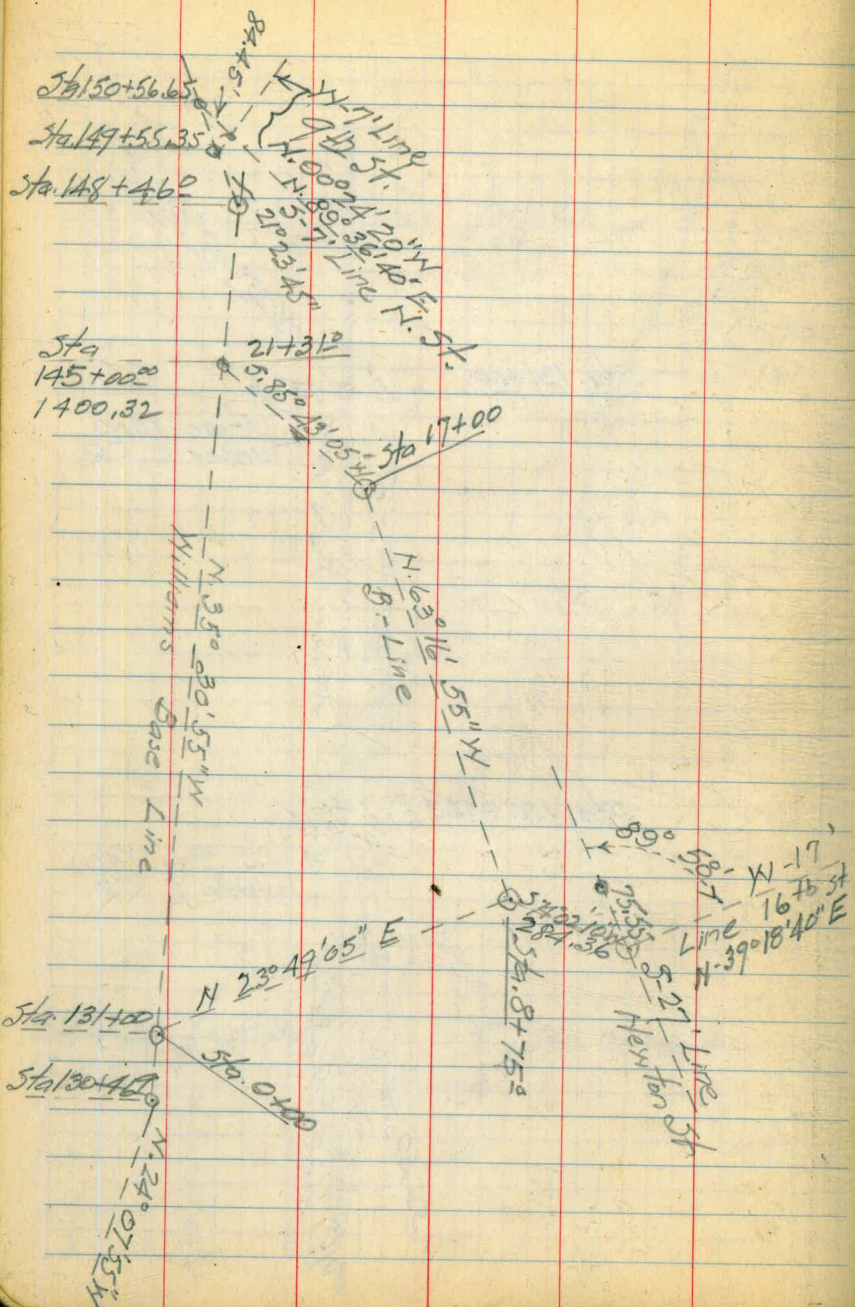 84.45'
Sta 150+56.65
50'
Sta. 149+55.35
Sta. 148+46.0
W-7' Line
9th St.
N. 00° 24' 20" W
N. 89° 36' 40" E
N. St.
S-7' Line
21° 23' 45"
Sta
145+00.00
1400.32
21+31.0
S. 85° 43' 05" W
Sta 17+00
N. 63° 16' 55" W
B-Line
N. 35° 30' 55" W
Williams Base Line
89° 58'
W-17'
16th St
Line
N-39° 18' 40" E
75.55
284.36
Sta. 8+75.0
S-27' Line
Newton St
N 23° 49' 05" E
Sta. 131+00
Sta. 0+00
Sta 130+46.9
N. 24° 07' 55" W